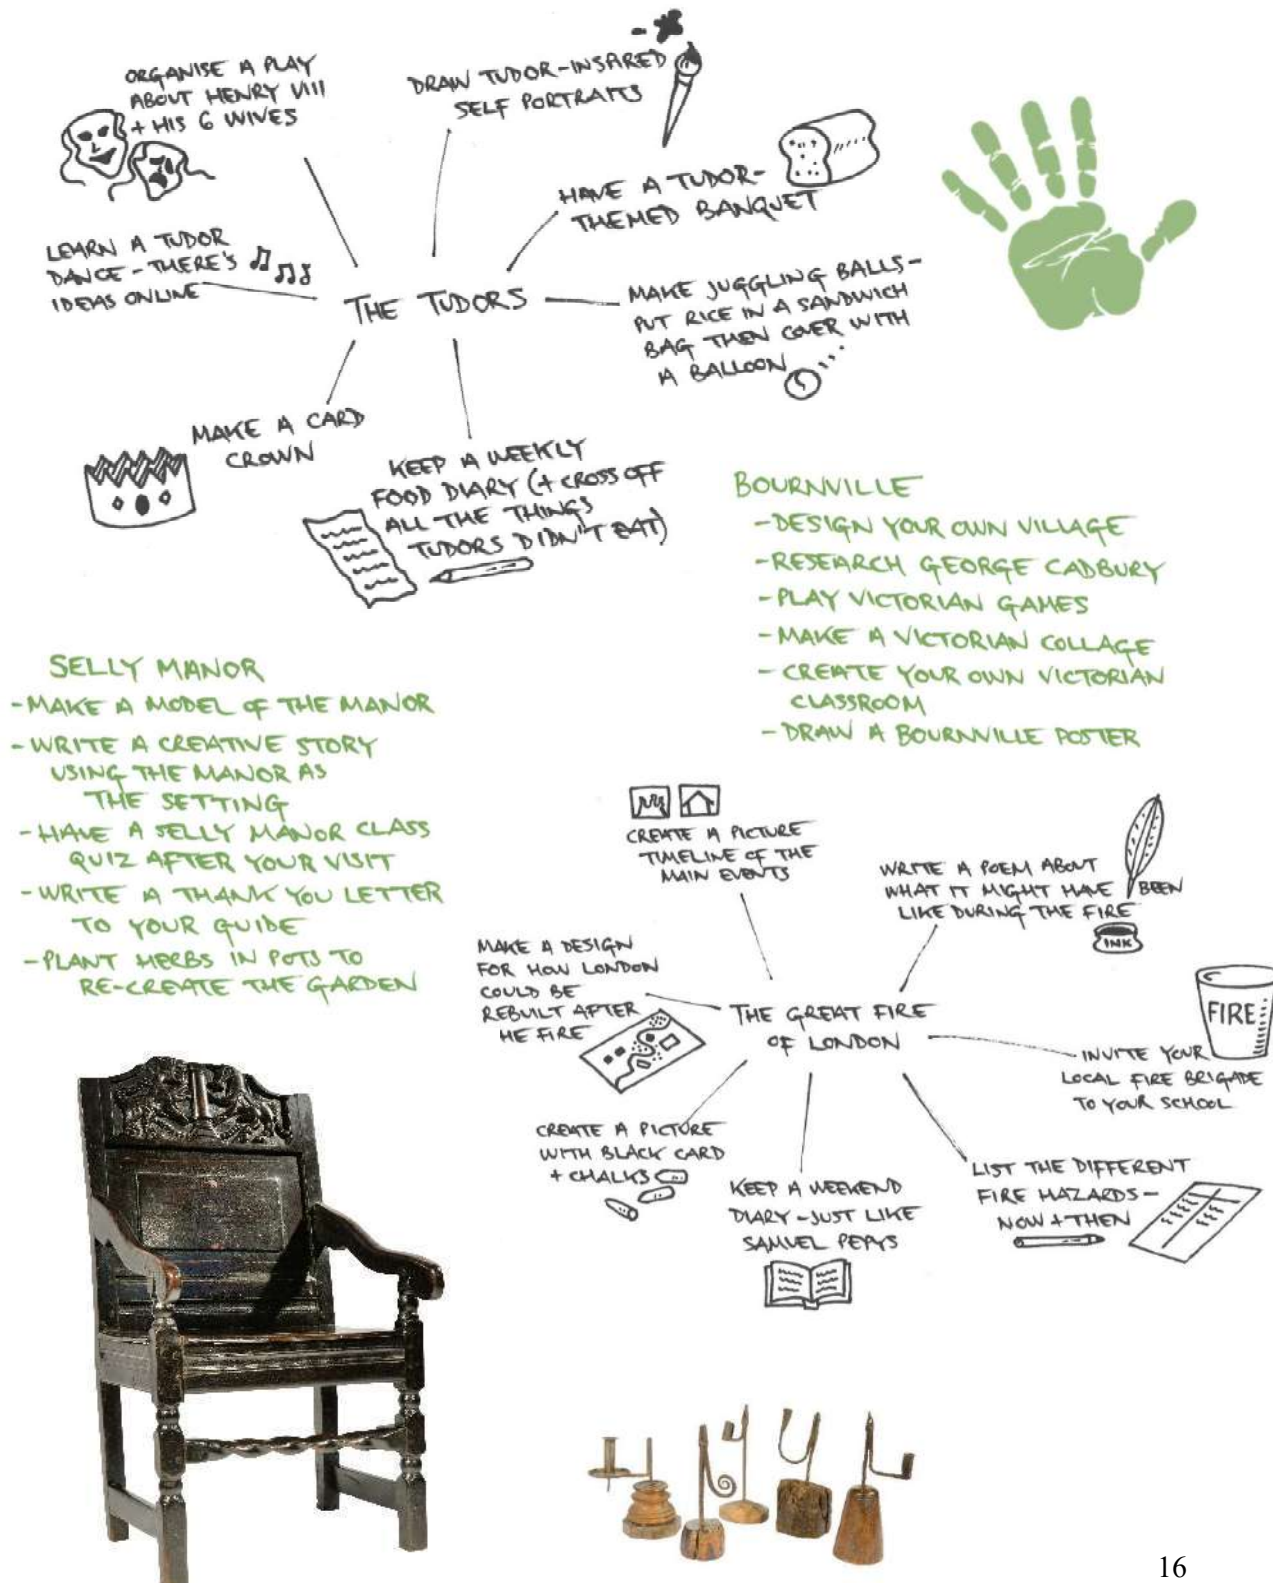 ORGANISE A PLAY
ABOUT HENRY VIII
+ HIS 6 WIVES
DRAW TUDOR-INSPIRED
SELF PORTRAITS
HAVE A TUDOR-
THEMED BANQUET
LEARN A TUDOR
DANCE - THERE'S
IDEAS ONLINE
THE TUDORS
MAKE JUGGLING BALLS -
PUT RICE IN A SANDWICH
BAG THEN COVER WITH
A BALLOON
MAKE A CARD
CROWN
KEEP A WEEKLY
FOOD DIARY (+ CROSS OFF
ALL THE THINGS
TUDORS DIDN'T EAT)
BOURNVILLE
- DESIGN YOUR OWN VILLAGE
- RESEARCH GEORGE CADBURY
- PLAY VICTORIAN GAMES
- MAKE A VICTORIAN COLLAGE
- CREATE YOUR OWN VICTORIAN
CLASSROOM
- DRAW A BOURNVILLE POSTER
SELLY MANOR
- MAKE A MODEL OF THE MANOR
- WRITE A CREATIVE STORY
USING THE MANOR AS
THE SETTING
- HAVE A SELLY MANOR CLASS
QUIZ AFTER YOUR VISIT
- WRITE A THANK YOU LETTER
TO YOUR GUIDE
- PLANT HERBS IN POTS TO
RE-CREATE THE GARDEN
CREATE A PICTURE
TIMELINE OF THE
MAIN EVENTS
WRITE A POEM ABOUT
WHAT IT MIGHT HAVE BEEN
LIKE DURING THE FIRE
INK
MAKE A DESIGN
FOR HOW LONDON
COULD BE
REBUILT AFTER
HE FIRE
THE GREAT FIRE
OF LONDON
FIRE
INVITE YOUR
LOCAL FIRE BRIGADE
TO YOUR SCHOOL
CREATE A PICTURE
WITH BLACK CARD
+ CHALKS
KEEP A WEEKEND
DIARY - JUST LIKE
SAMUEL PEPYS
LIST THE DIFFERENT
FIRE HAZARDS -
NOW + THEN
16